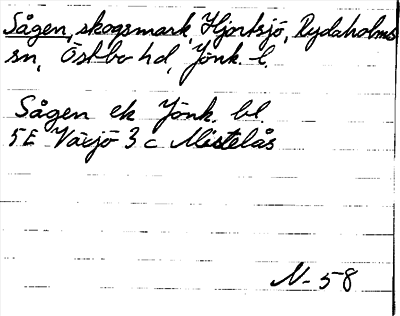 Sågen, skogsmark, Hjortsjö, Rydaholms
sn, Östbo hd, Jönk. l.
Sågen ek Jönk. bl.
5E Växjö 3 c Mistelås
N-58